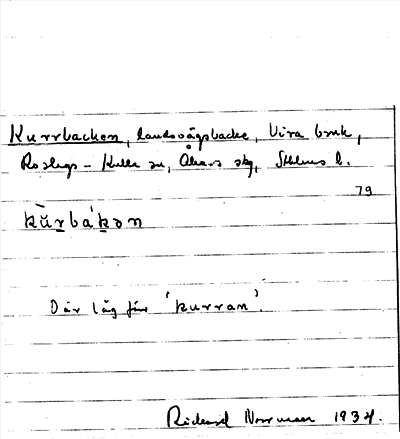 Kurrbacken, landsvägsbacke, Vira bruk,
Roslags-Kulla sn, Åkers skg, Sthlms l.
79
kŭrbákən
Där låg förr 'kurran'.
Rickard Norrman 1934.